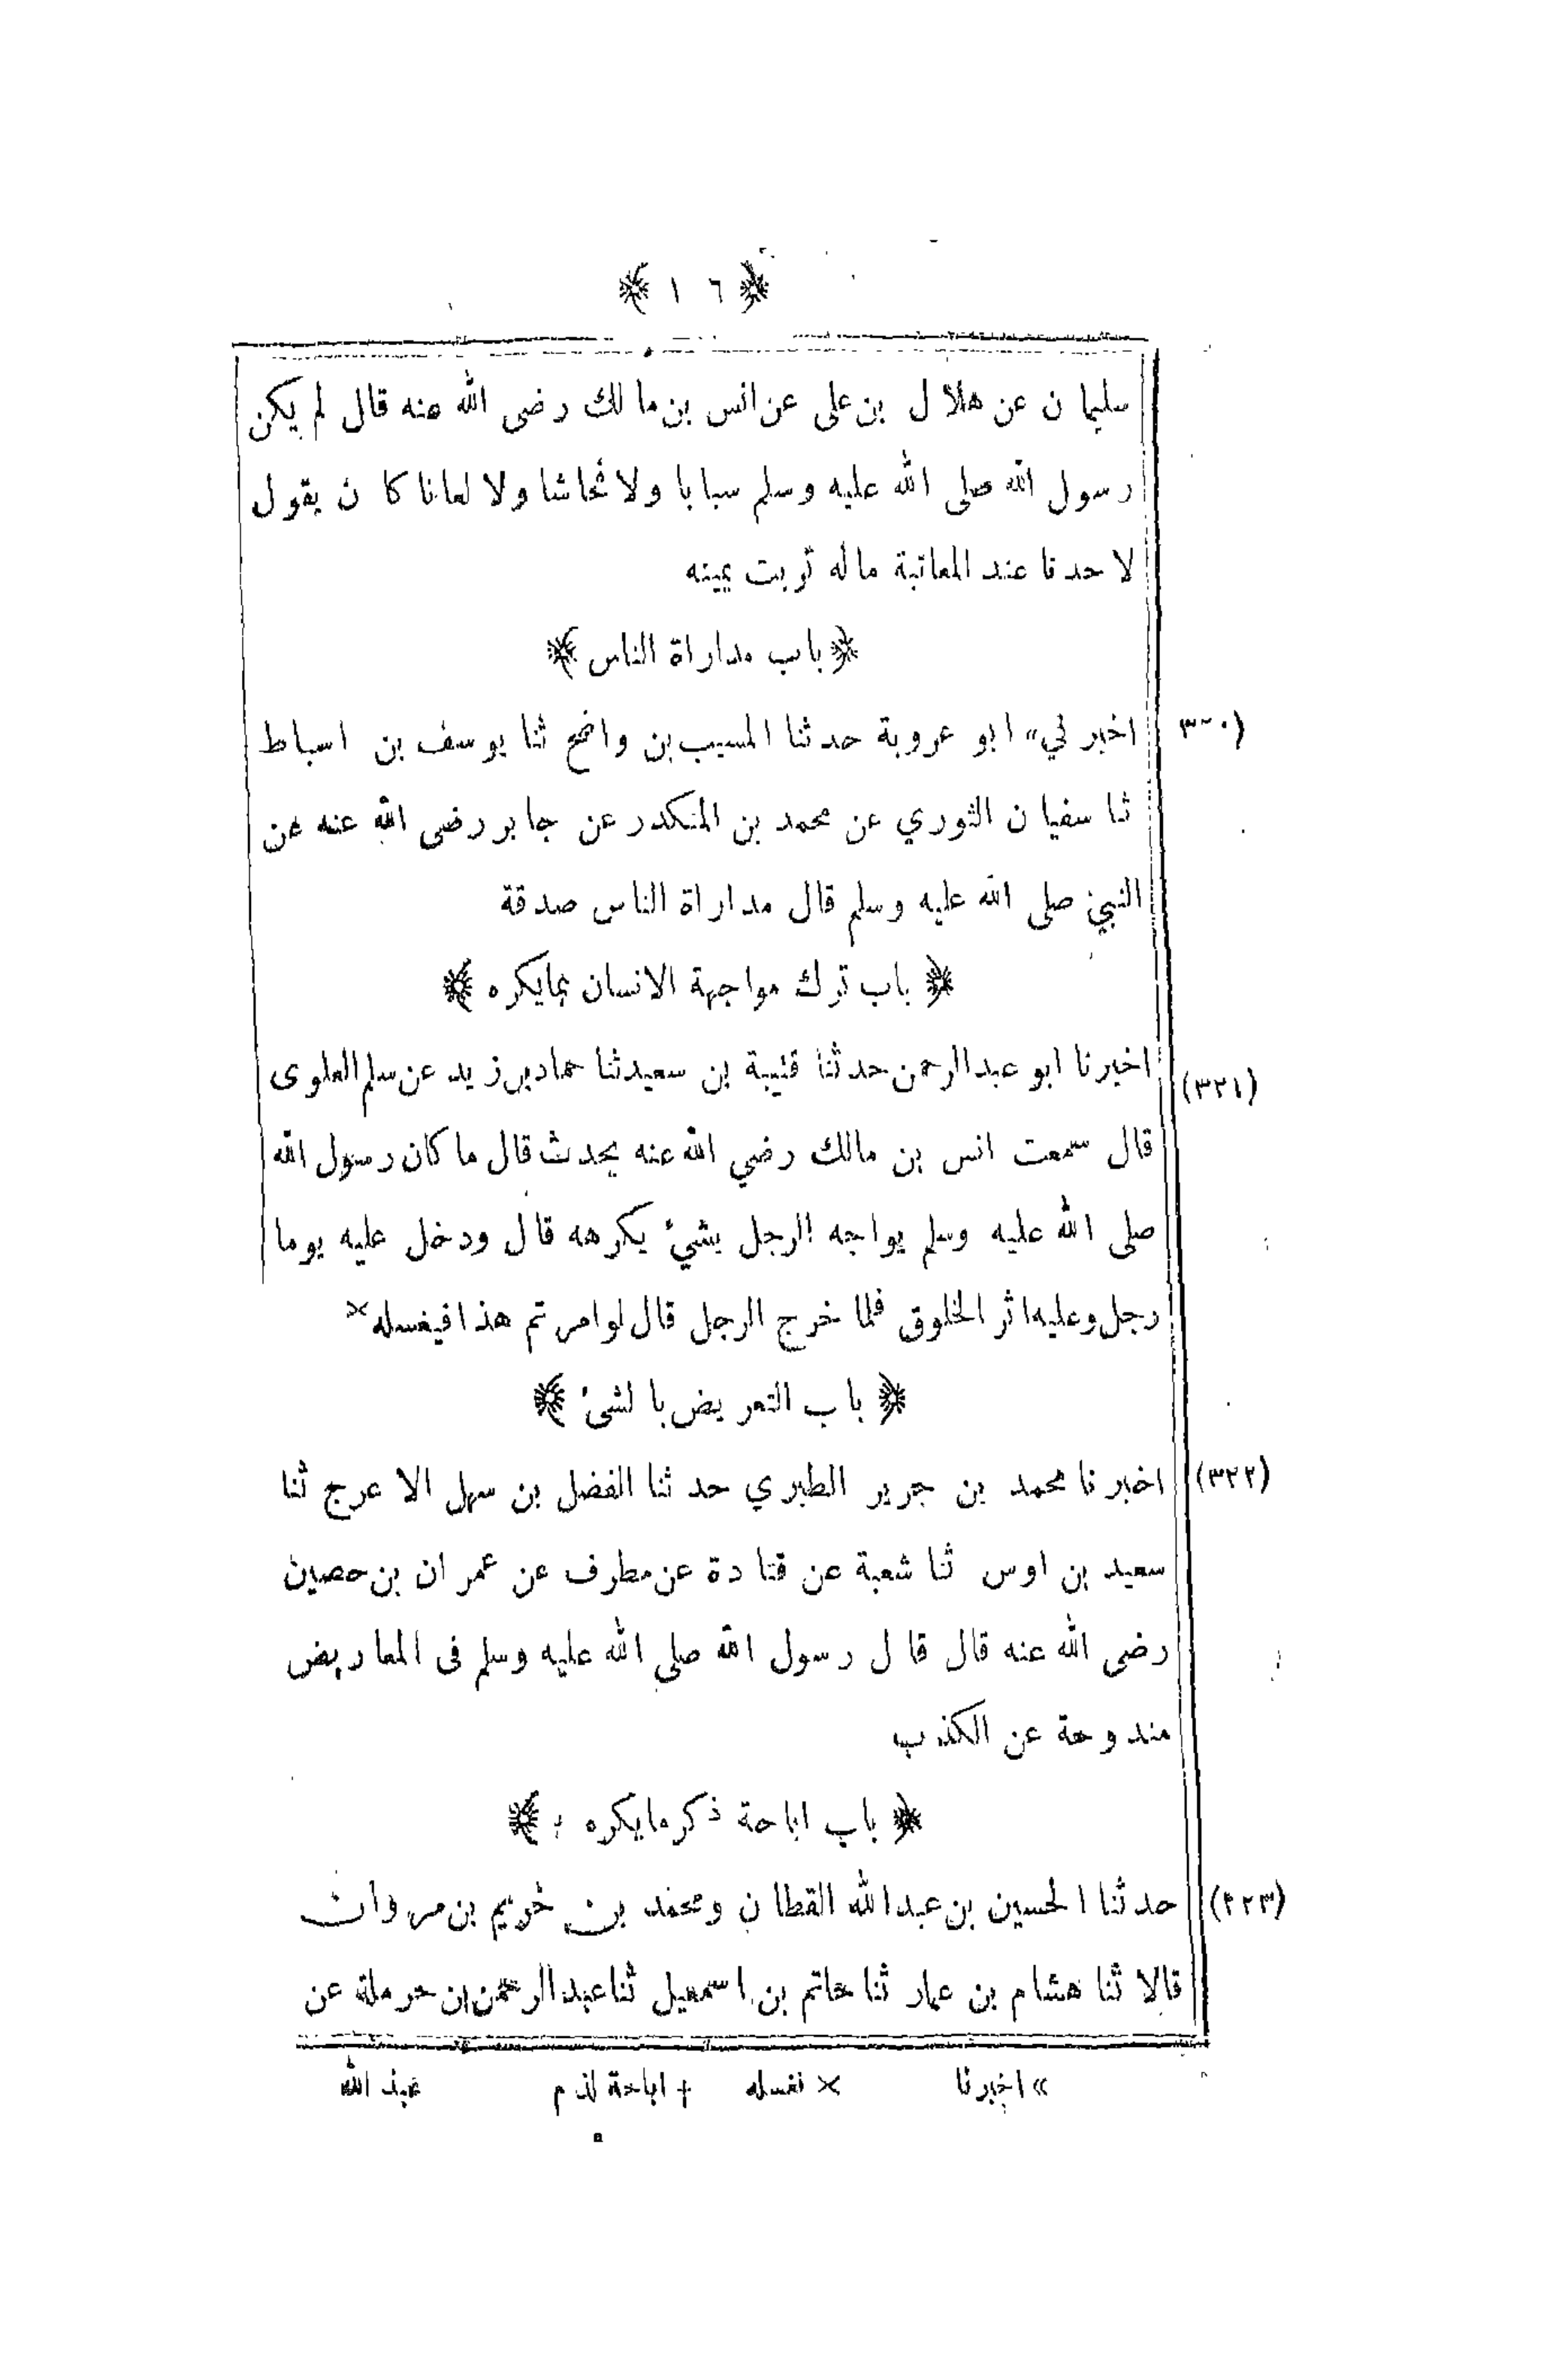 ﴿ ١٦ ﴾
سليمان عن هلال بن على عن انس بن مالك رضى الله عنه قال لم يكن
رسول الله صلى الله عليه وسلم سبابا ولا فحاشا ولا لعانا كان يقول
لاحدنا عند المعاتبة ماله تربت يمينه
﴿ باب مداراة الناس ﴾
اخبرني» ابو عروبة حدثنا المسيب بن واضح ثنا يوسف بن اسباط (٣٢٠
ثنا سفيان الثوري عن محمد بن المنكدر عن جابر رضى الله عنه عن
النبي صلى الله عليه وسلم قال مداراة الناس صدقة
﴿ باب ترك مواجهة الانسان بمايكره ﴾
اخبرنا ابو عبدالرحمن حدثنا قتيبة بن سعيد ثنا حماد بن زيد عن سلم العلوى (٣٢١)
قال سمعت انس بن مالك رضي الله عنه يحدث قال ما كان رسول الله
صلى الله عليه وسلم يواجه الرجل بشيٴ يكرهه قال ودخل عليه يوما
رجل وعليه اثر الخلوق فلما خرج الرجل قال لوامرتم هذا فيغسله×
﴿ باب التعريض بالشئ ﴾
اخبرنا محمد بن جرير الطبري حدثنا الفضل بن سهل الاعرج ثنا (٣٢٢)
سعيد بن اوس ثنا شعبة عن قتادة عن مطرف عن عمران بن حصين
رضى الله عنه قال قال رسول الله صلى الله عليه وسلم فى المعاريض
مندوحة عن الكذب
﴿ باب اباحة ذكر مايكره ﴾
حدثنا الحسين بن عبدالله القطان ومحمد بن خريم بن مروان (٣٢٣)
قالا ثنا هشام بن عمار ثنا حاتم بن اسمعيل ثنا عبدالرحمن بن حرملة عن
» اخبرنا × نغسله + اباحة لذم عبد الله